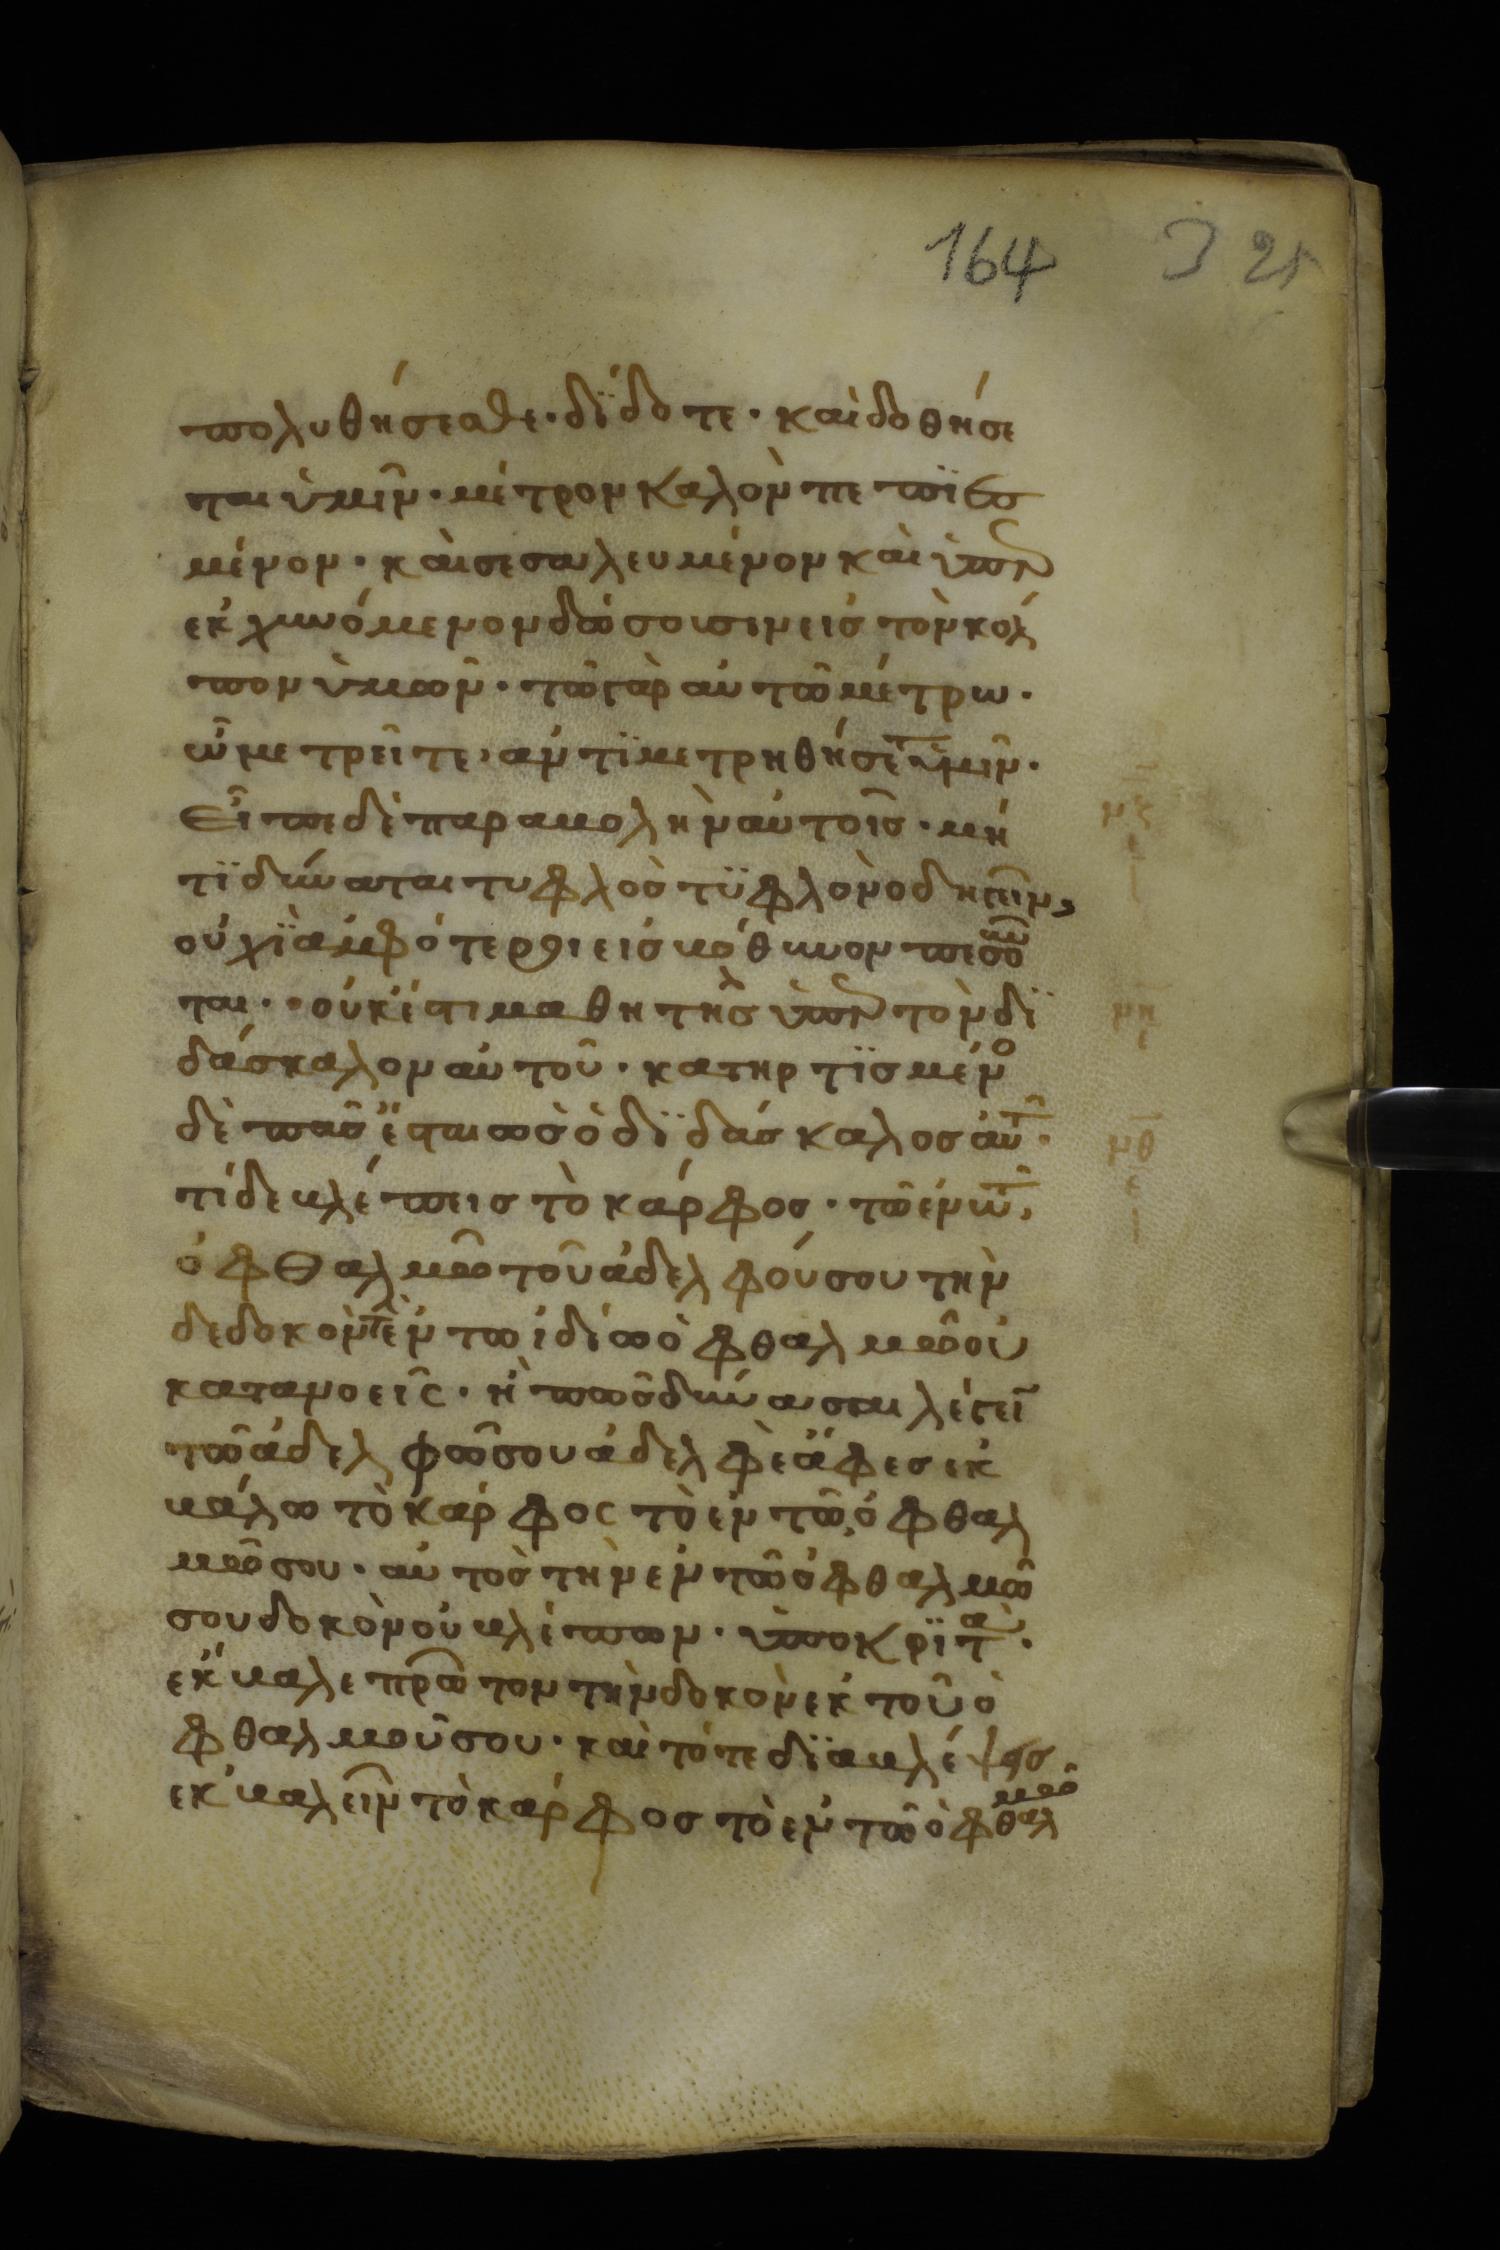 164 321
πολυθήσεσθε· δΐδοτε· καὶ δοθήσε
ται ὑμῖν· μέτρον καλὸν πεπϊεσ
μένον· καὶ σεσαλευμένον καὶ ὑπὲρ
εκχυνόμενον δώσουσιν εις τὸν κόλ
πον ὑμῶν· τῶ γὰρ αὐτῶ μέτρω·
ὧ μετρεῖτε, αντϊμετρηθήσετ ὑμῖν·
Εἶπε δὲ παραβολὴν αὐτοῖς· μή
τϊ δύναται τυφλὸς τϋφλὸν οδηγεῖν,
οὐχῒ ἀμφότεροι εις βόθυνον πεσοῦν
ται·· οὐκ έστι μαθητὴς ὑπὲρ τὸν δϊ
δάσκαλον αὐτοῦ· κατηρτϊσμένο
δὲ πᾶς ἔσται ὡς ὁ δϊδάσκαλος αὐτ·
τί δε βλέπεις τὸ κάρφος· τῶ έν ωτ,
ὀφθαλμῶ τοῦ ἀδελφού σου τὴν
δε δοκὸν τ ὲν τω ιδίω ὀφθαλμῶ οὐ
κατανοεις· ἢ πῶς δύνασαι λέγειν
τῶ ἀδελφῶ σου ἀδελφὲ ἄφες εκ
βάλω τὸ κάρφος τὸ εν τῶ ὀφθαλ
μῶ σου· αὐτὸς τὴν εν τῶ ὀφθαλμῶ
σου δοκὸν οὐ βλέπων· ὑποκρϊτὰ·
έκβαλε πρῶτον τὴν δοκὸν εκ τοῦ ὀ
φθαλμοῦ σου· καὶ τότε δϊαβλέψεις
εκβαλεῖν τὸ κάρφος τὸ εν τῶ ὀφθαλμῶ
μζ
ε
μη
ε
μθ
ε